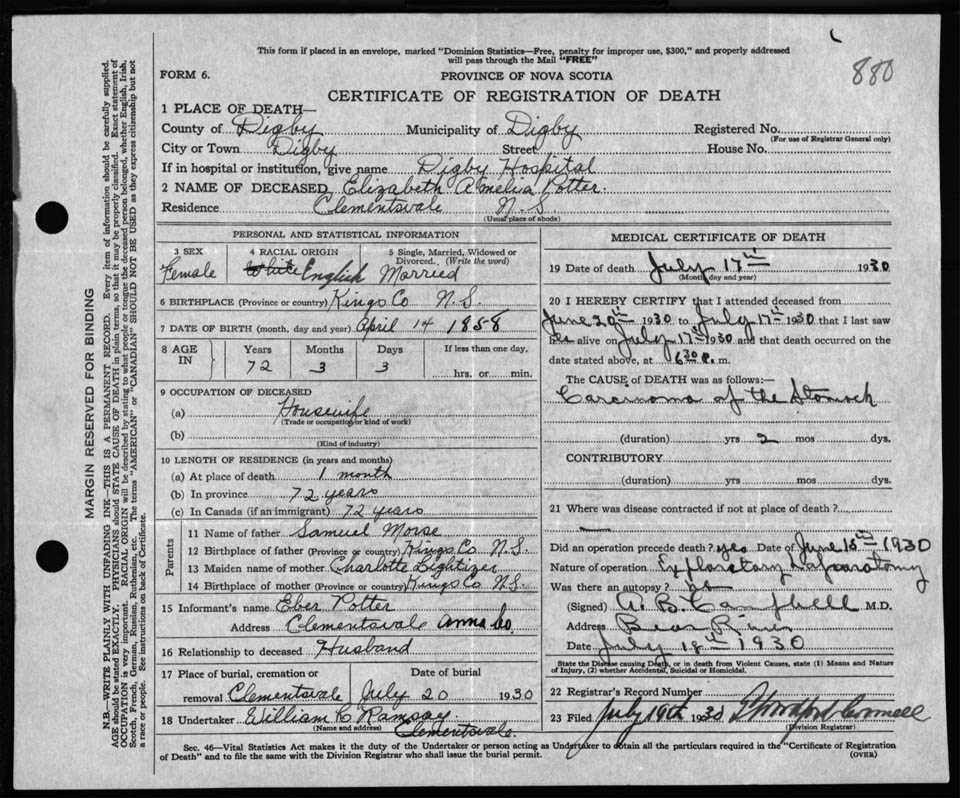 This form if placed in an envelope, marked "Dominion Statistics—Free, penalty for improper use, $300," and properly addressed
will pass through the Mail "FREE"
880
FORM 6.
PROVINCE OF NOVA SCOTIA
CERTIFICATE OF REGISTRATION OF DEATH
1 PLACE OF DEATH—
County of Digby Municipality of Digby Registered No.
(For use of Registrar General only)
City or Town Digby Street House No.
If in hospital or institution, give name Digby Hospital
2 NAME OF DECEASED Elizabeth Amelia Potter.
Residence Clementsvale N.S.
(Usual place of abode)
PERSONAL AND STATISTICAL INFORMATION
3 SEX 4 RACIAL ORIGIN 5 Single, Married, Widowed or
Divorced. (Write the word)
Female White English Married
6 BIRTHPLACE (Province or country) Kings Co N.S.
7 DATE OF BIRTH (month, day and year) April 14 1858
8 AGE IN Years Months Days If less than one day,
72 3 3 hrs. or min.
9 OCCUPATION OF DECEASED
(a) Housewife
(Trade or occupation or kind of work)
(b)
(Kind of industry)
10 LENGTH OF RESIDENCE (in years and months)
(a) At place of death 1 month
(b) In province 72 years
(c) In Canada (if an immigrant) 72 years
Parents
11 Name of father Samuel Morse
12 Birthplace of father (Province or country) Kings Co N.S.
13 Maiden name of mother Charlotte Lightizer
14 Birthplace of mother (Province or country) Kings Co N.S.
15 Informant's name Eber Potter
Address Clementsvale Anna Co.
16 Relationship to deceased Husband
17 Place of burial, cremation or Date of burial
removal Clementsvale July 20 1930
18 Undertaker William C. Ramsay.
(Name and address) Clementsvale.
MEDICAL CERTIFICATE OF DEATH
19 Date of death July 17th 1930
(Month, day and year)
20 I HEREBY CERTIFY that I attended deceased from
June 20th 1930 to July 17th 1930 that I last saw
her alive on July 17th 1930 and that death occurred on the
date stated above, at 6 30 P. m.
The CAUSE of DEATH was as follows:—
Carcinoma of the Stomach
(duration) yrs 2 mos dys.
CONTRIBUTORY
(duration) yrs mos dys.
21 Where was disease contracted if not at place of death?
Did an operation precede death? yes Date of June 18th 1930
Nature of operation Exploratory Laparatomy
Was there an autopsy?
(Signed) A. B. Campbell M.D.
Address Bear River
Date July 18th 1930
State the Disease causing Death, or in death from Violent Causes, state (1) Means and Nature
of Injury, (2) whether Accidental, Suicidal or Homicidal.
22 Registrar's Record Number
23 Filed July 19th 1930
(Division Registrar)
Sec. 46—Vital Statistics Act makes it the duty of the Undertaker or person acting as Undertaker to obtain all the particulars required in the "Certificate of Registration
of Death" and to file the same with the Division Registrar who shall issue the burial permit. (OVER)
MARGIN RESERVED FOR BINDING
N.B.—WRITE PLAINLY WITH UNFADING INK—THIS IS A PERMANENT RECORD. Every item of information should be carefully supplied.
AGE should be stated EXACTLY. PHYSICIANS should STATE CAUSE OF DEATH in plain terms, so that it may be properly classified. Exact statement of
OCCUPATION is very important. RACIAL ORIGIN will be described by stating to what people or tongue the deceased person belonged, whether English, Irish,
Scotch, French, German, Russian, Ruthenian, etc. The terms "AMERICAN" or "CANADIAN" SHOULD NOT BE USED as they express citizenship but not
a race or people. See instructions on back of Certificate.